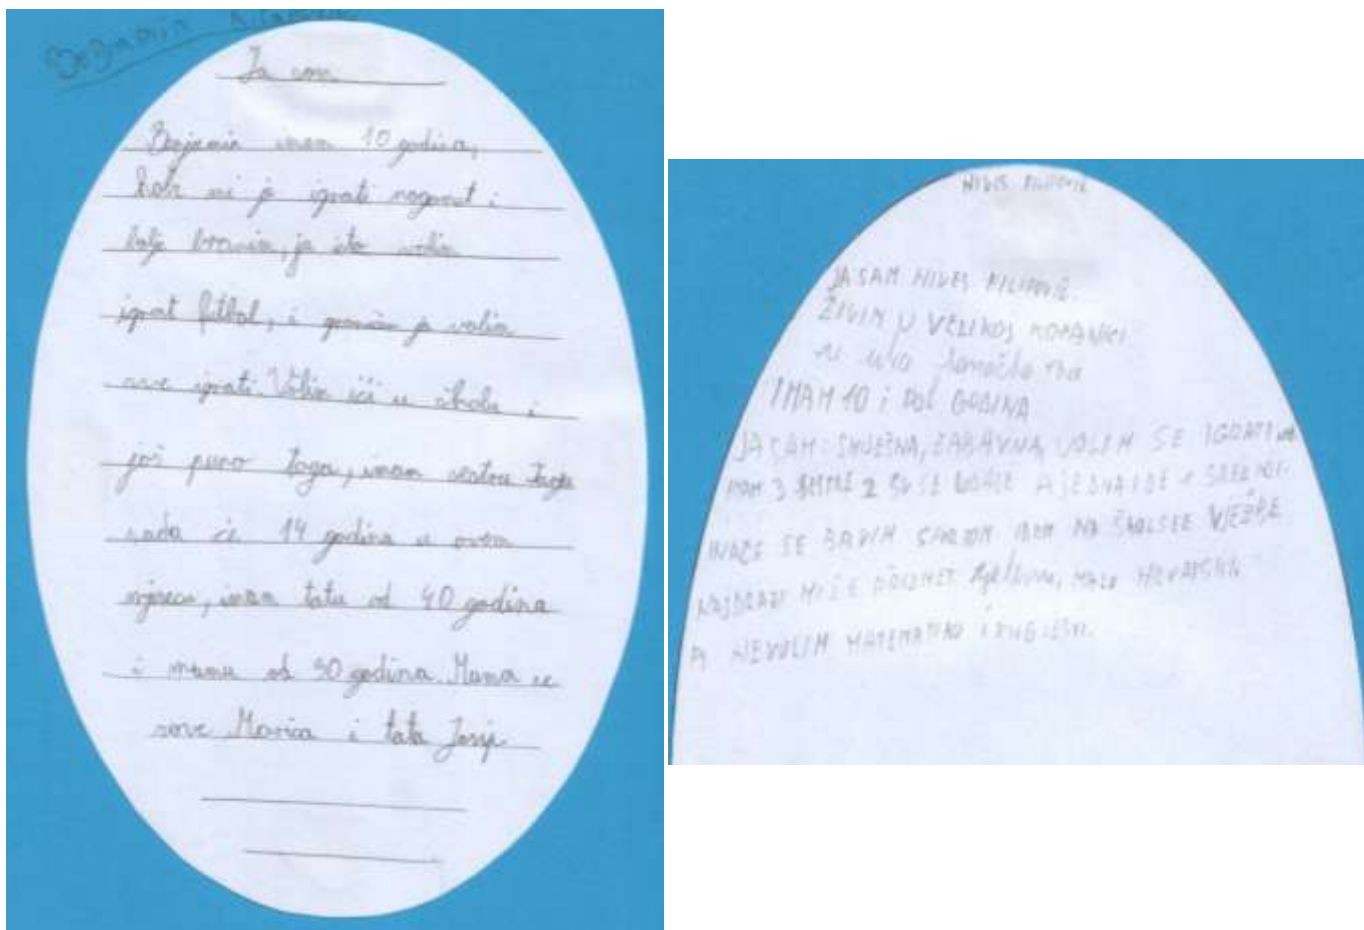 Benjamin
Ja sam
Benjamin imam 10 godina,
mi je igrati nogomet i
ja isto volim
igrat futbol, i volim
sve igrati. Volim ići u školu i
još puno toga, imam sestru koja
sada će 14 godina u ovom
mjesecu, imam tatu od 40 godina
i mamu od 30 godina. Mama se
zove Marica i tata Josip
NIVES FILIPOVIĆ
JA SAM NIVES FILIPOVIĆ.
ŽIVIM U VELIKOJ KOPANICI
IMAM 10 i POL GODINA
JA SAM: SMIJEŠNA, ZABAVNA, VOLIM SE IGRATI
IMAM 3 SESTRE 2 SU SE UDALE A JEDNA IDE
INAČE SE BAVIM IDEM NA ŠKOLSKE VJEŽBE
NAJDRAŽI MI JE PREDMET MALO HRVATSKI
A NEVOLIM MATEMATIKU I ENGLESKI.